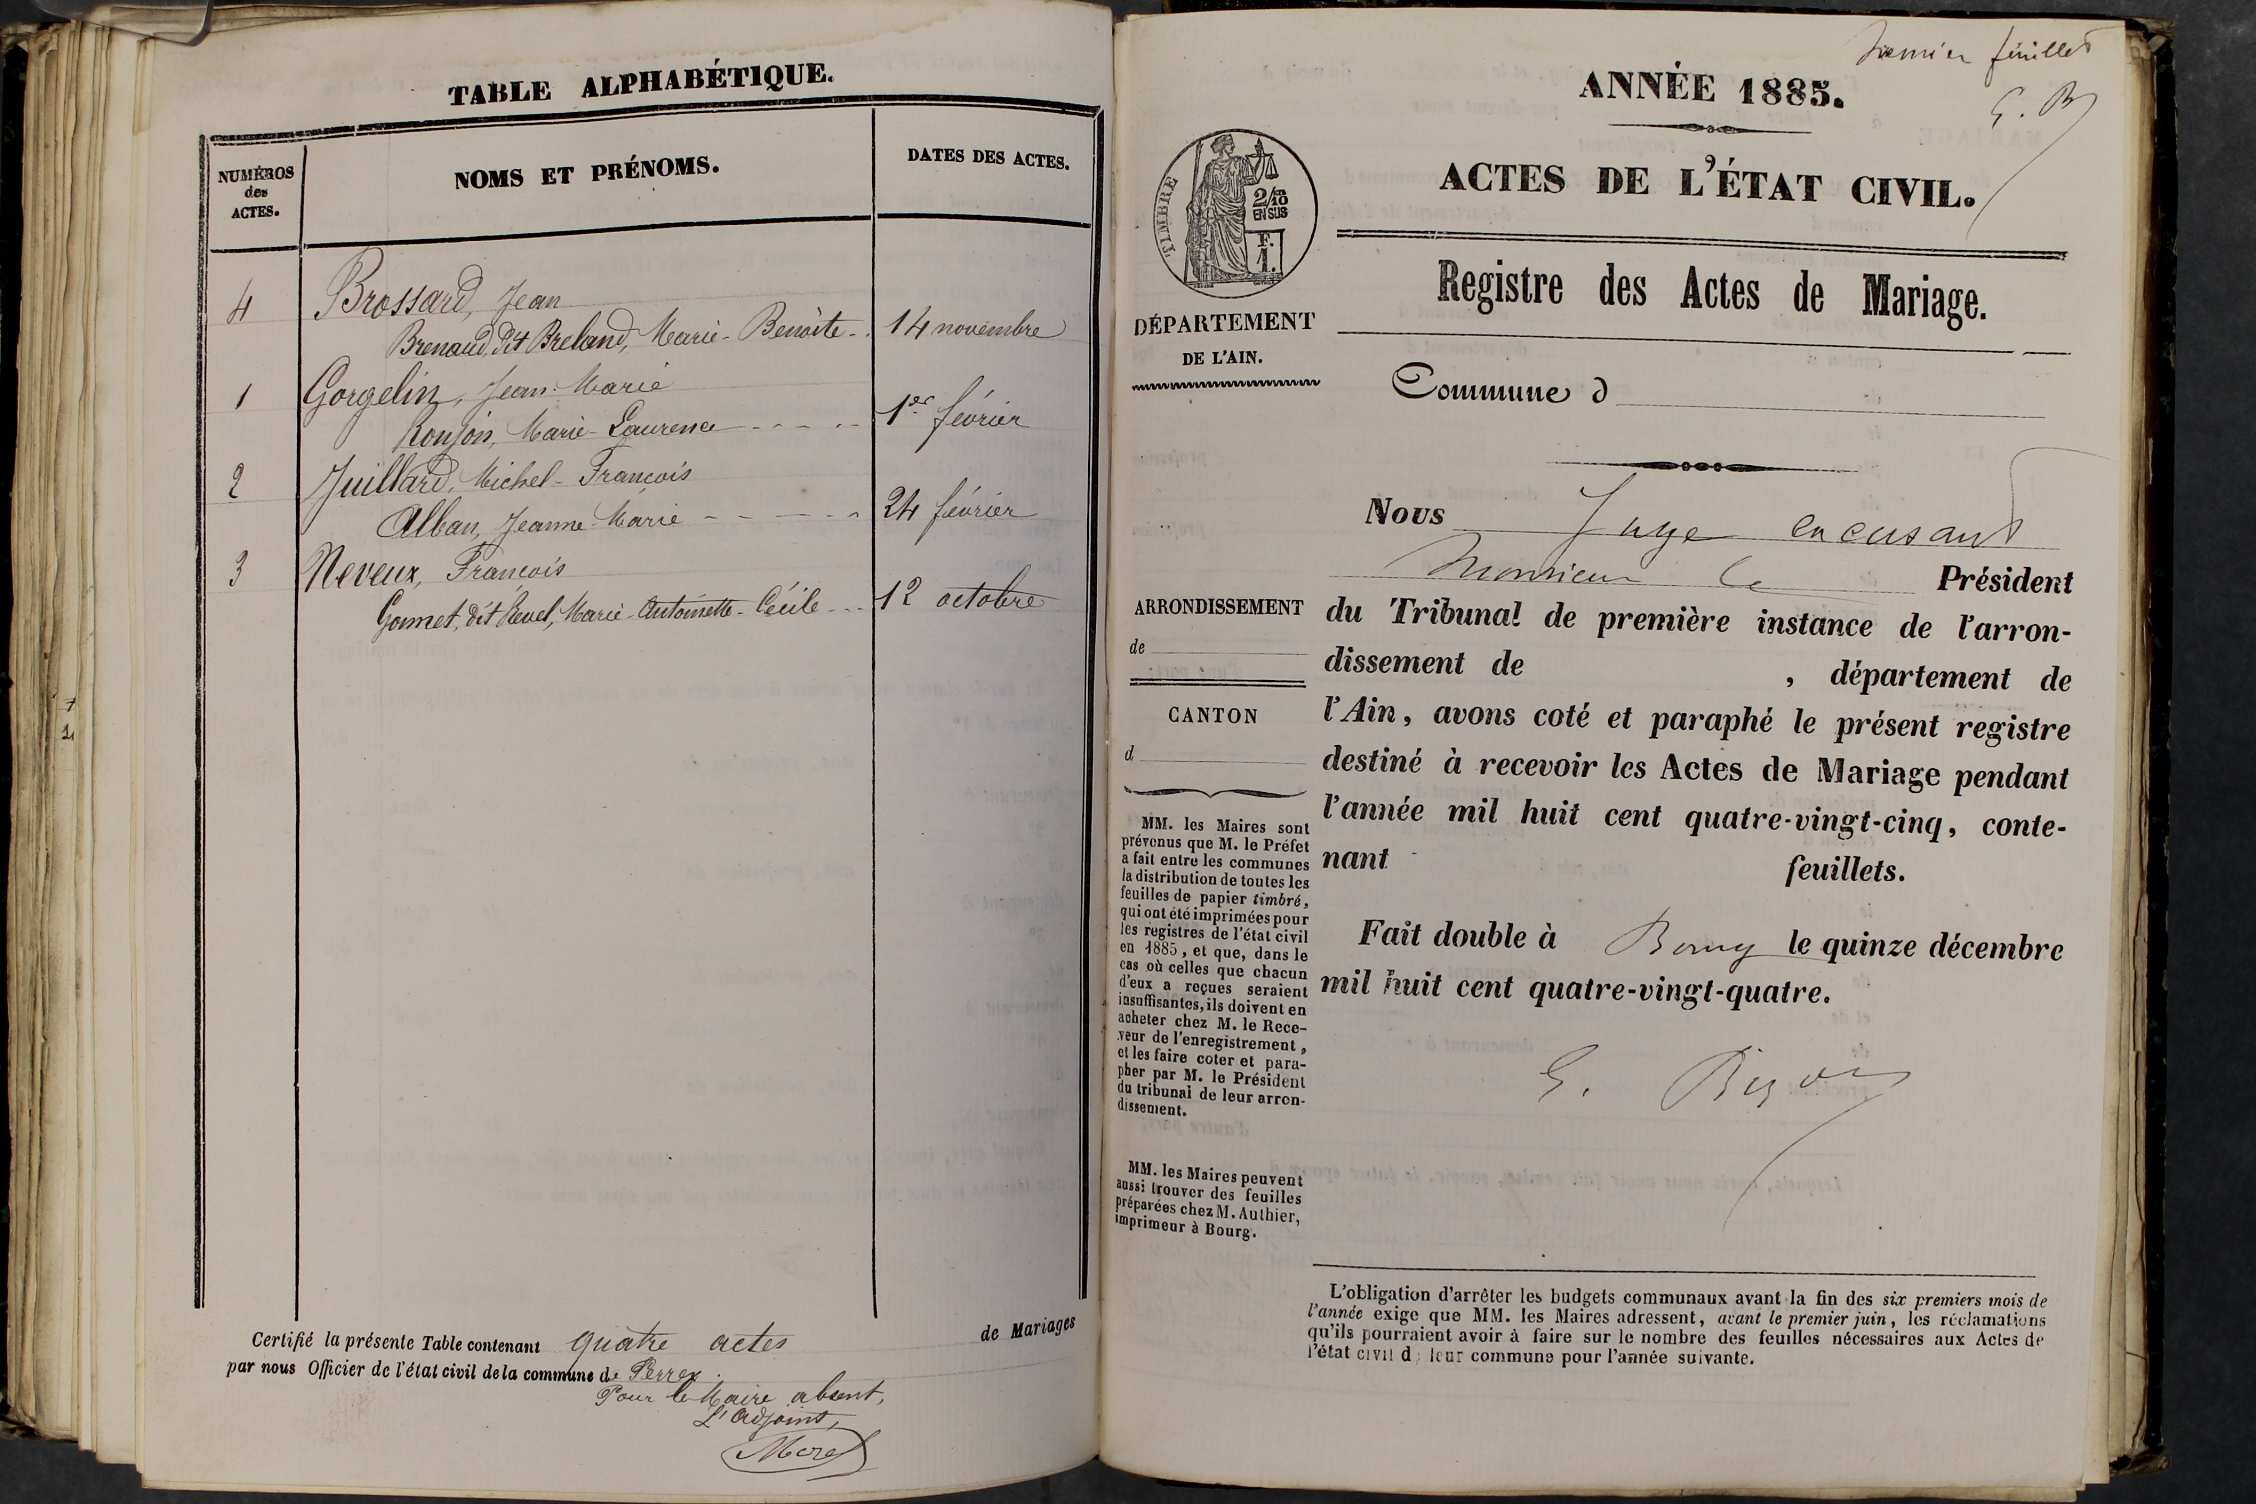 TABLE ALPHABÉTIQUE.
NUMÉROS
des
ACTES.
NOMS ET PRÉNOMS.
DATES DES ACTES.
4 Brossard, Jean
Brenaud, dit Breland, Marie-Benoîte 14 novembre
1 Gorgelin, Jean-Marie
Ronjon, Marie-Laurence 1er février
2 Juillard, Michel-François
Alban, Jeanne-Marie 24 février
3 Neveux, François
Gonnet, dit Revel, Marie-Antoinette-Cécile 12 octobre
Certifié la présente Table contenant quatre actes de Mariages
par nous Officier de l'état civil de la commune de Perrex.
Pour le Maire absent,
L'adjoint,
Morel
Premier feuillet
G. B
ANNÉE 1885.
ACTES DE L'ÉTAT CIVIL.
TIMBRE
2/10
EN SUS
F.
1.
DÉPARTEMENT
DE L'AIN.
ARRONDISSEMENT
de
CANTON
d
MM. les Maires sont
prévenus que M. le Préfet
a fait entre les communes
la distribution de toutes les
feuilles de papier timbré,
qui ont été imprimées pour
les registres de l'état civil
en 1885, et que, dans le
cas où celles que chacun
d'eux a reçues seraient
insuffisantes, ils doivent en
acheter chez M. le Rece-
veur de l'enregistrement,
et les faire coter et para-
pher par M. le Président
du tribunal de leur arron-
dissement.
MM. les Maires peuvent
aussi trouver des feuilles
préparées chez M. Authier,
imprimeur à Bourg.
Registre des Actes de Mariage.
Commune d
Nous Juge en cusant
Monsieur le Président
du Tribunal de première instance de l'arron-
dissement de , département de
l'Ain, avons coté et paraphé le présent registre
destiné à recevoir les Actes de Mariage pendant
l'année mil huit cent quatre-vingt-cinq, conte-
nant feuillets.
Fait double à Bourg le quinze décembre
mil huit cent quatre-vingt-quatre.
L'obligation d'arrêter les budgets communaux avant la fin des six premiers mois de
l'année exige que MM. les Maires adressent, avant le premier juin, les réclamations
qu'ils pourraient avoir à faire sur le nombre des feuilles nécessaires aux Actes de
l'état civil de leur commune pour l'année suivante.